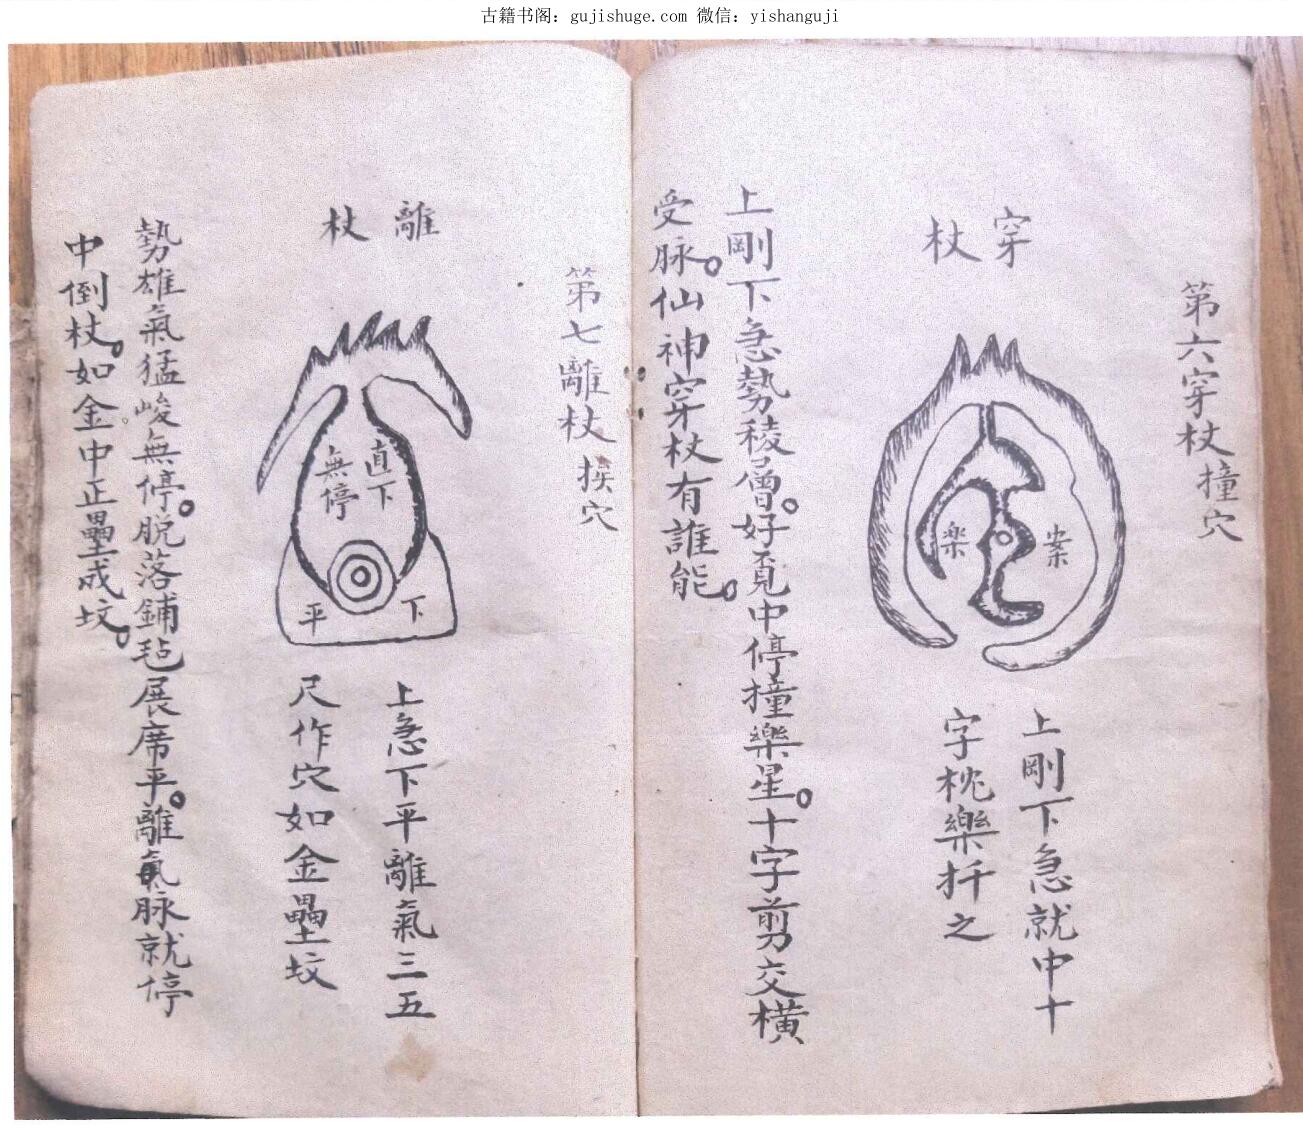 古籍书阁：gujishuge.com 微信：yishanguji
第六穿杖撞穴
穿杖
案
楽
上剛下急就中十
字枕樂扦之
上剛下急勢稜層。好覓中停撞樂星。十字剪交橫
受脉。仙神穿杖有誰能。
第七離杖挨穴
離杖
直下
無停
下
平
上急下平離氣三五
尺作穴如金壘坟
勢雄氣猛峻無停。脱落鋪毡展席平。離氣脉就停
中倒杖。如金中正壘成坟。